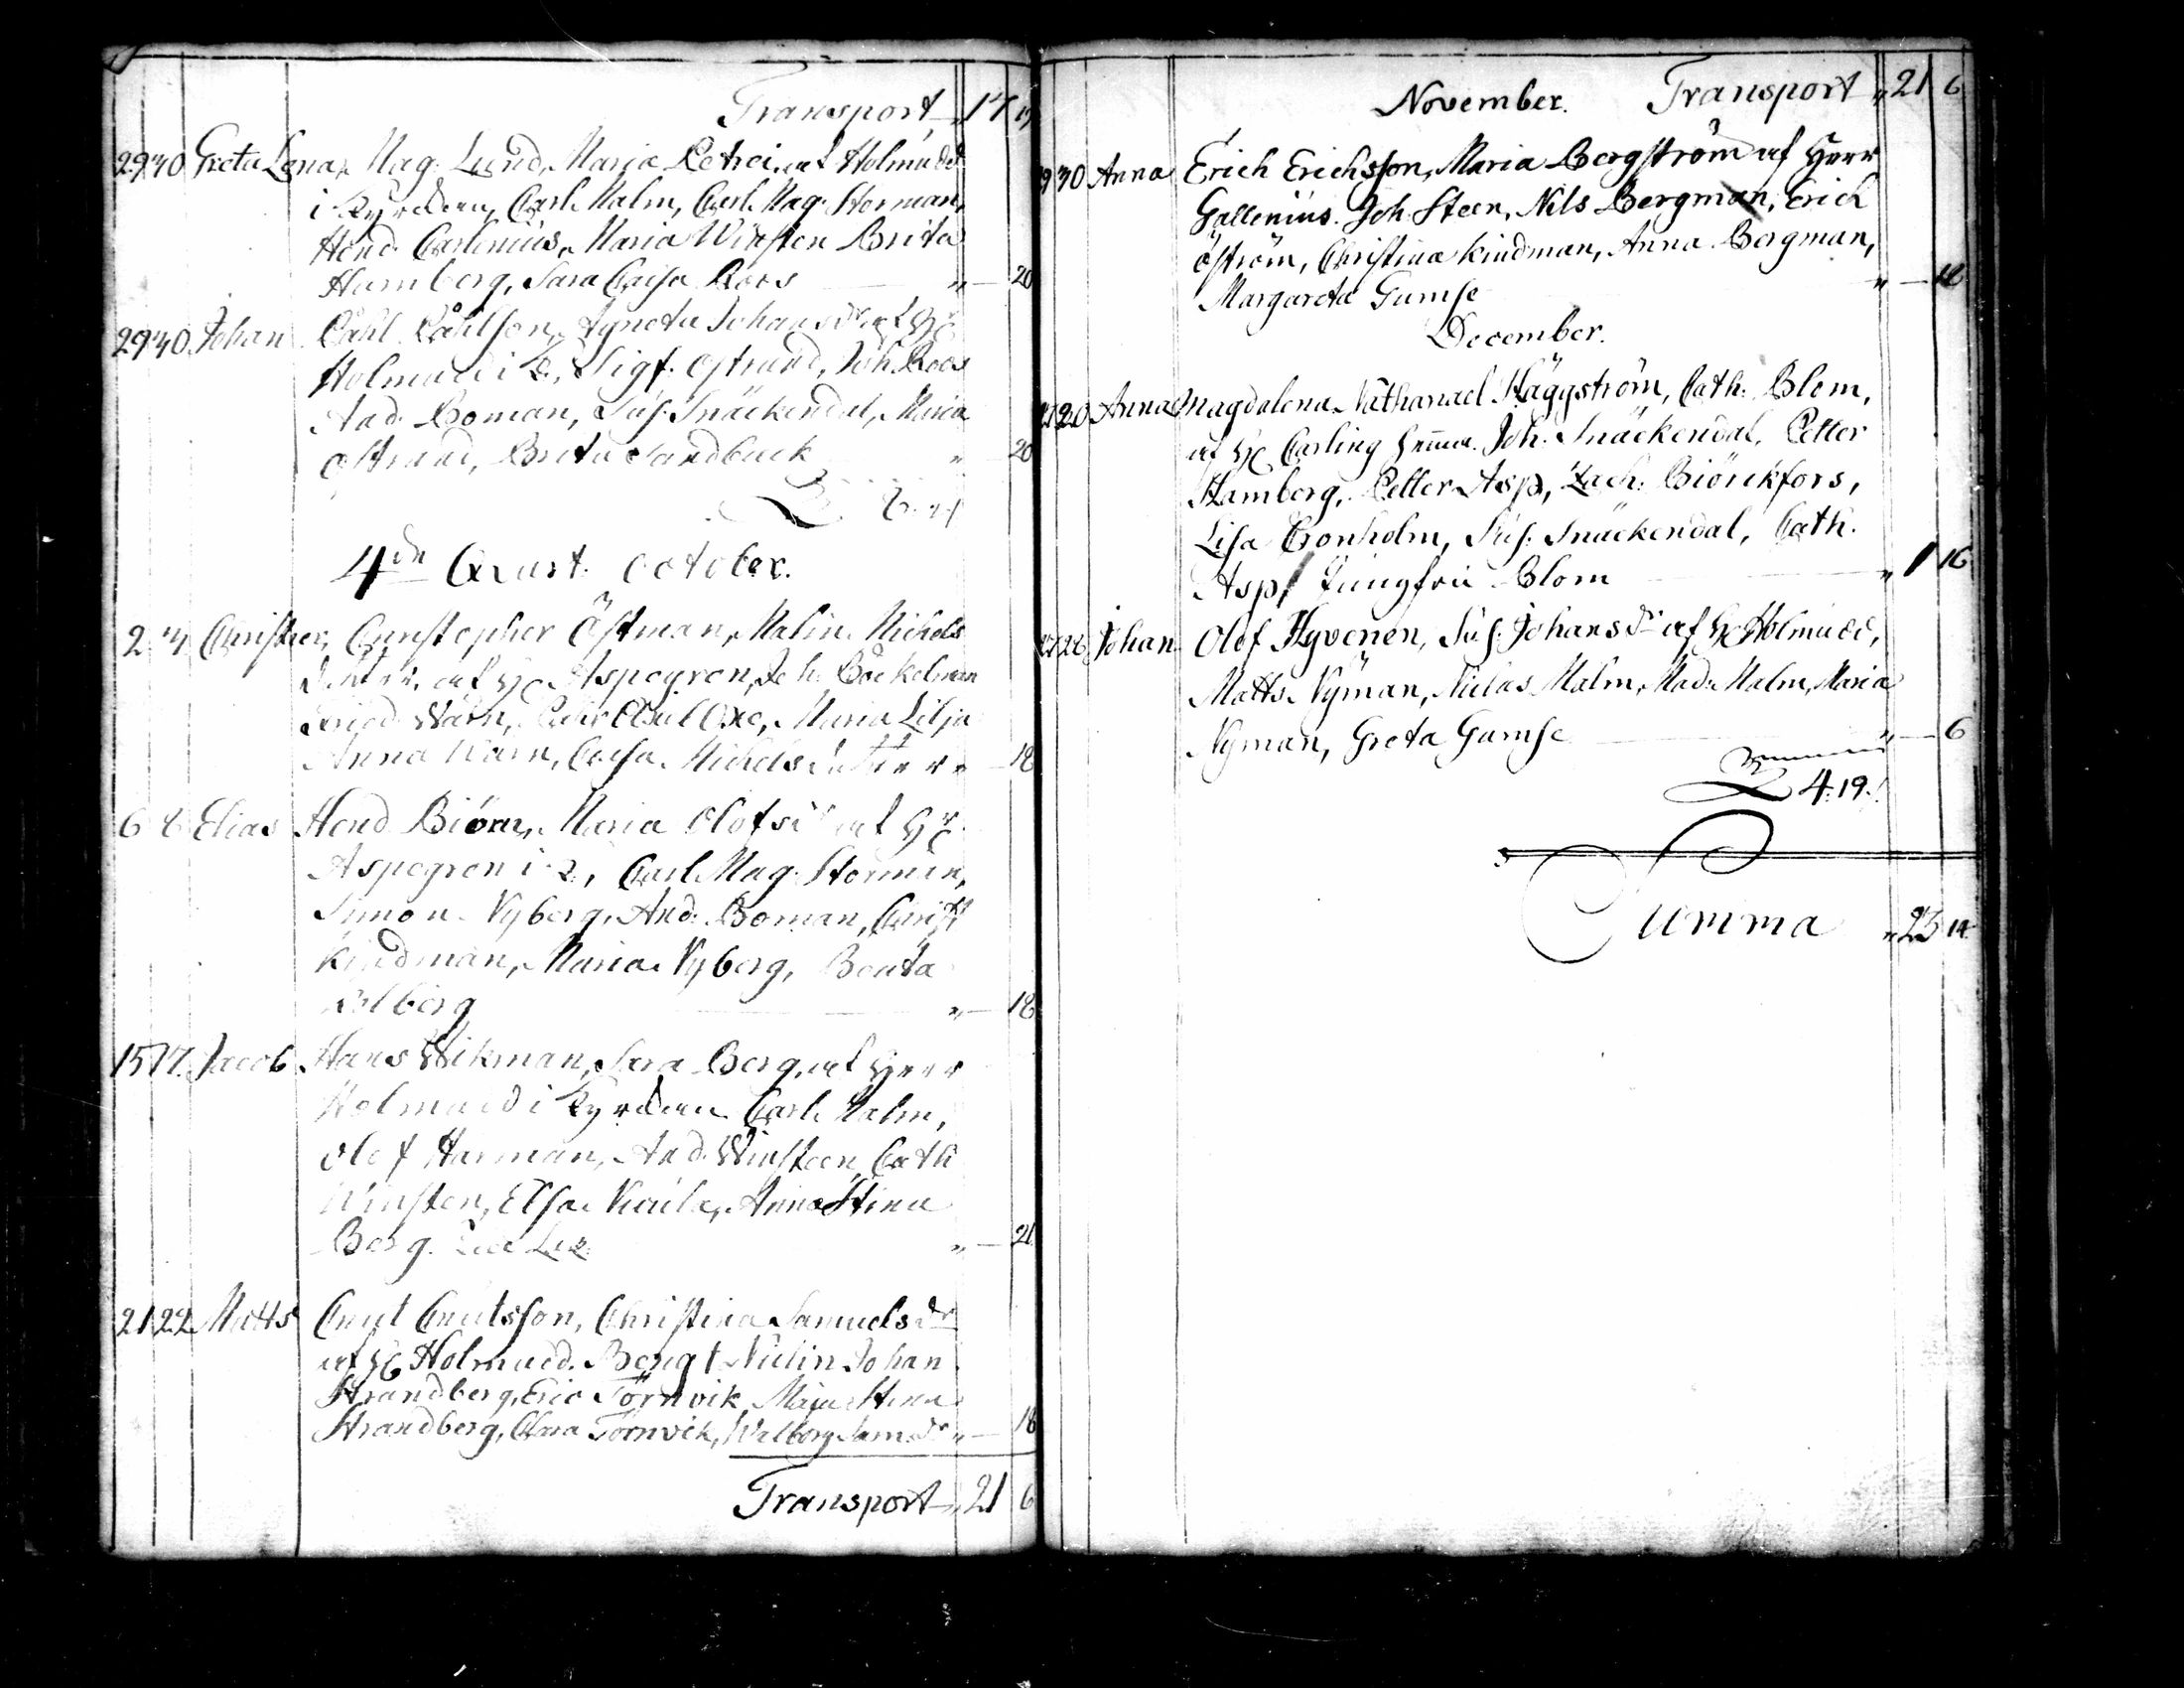 Transport „ 17 19
29 30 Greta Lena. Mag. Lund, Maria Petrei. af Holmudd
i Kyrckan, Carl Malm, Carl Mag. Storman,
Hend. Carlenius, Maria Winsten Brita
Humberg, Sara Caisa Roos „ — 20
29 30 Johan Påhl Påhlson, Agneta Johansdr af Hr
Holmudd i K., Sigf. Ostrand, Joh. Roos
And. Boman, Sus. Snäckendal, Maria
Ostrand, Brita Sandback „ 20
4de Quart. October.
2 4 Christer, Christopher Östman, Malin Michels
dotter. af Hr Aspegren, Joh. Böckelman
Wärn, Maria Lilja
Anna Wärn, Caisa Michelsdotter „ — 18
6 8 Elias Hend. Biörn, Maria Olofsdr af Hr
Aspegren i K., Carl Mag. Storman,
Simon Nyberg, And. Boman, Christ.
Kindman, Maria Nyberg, Beata
„ — 18
15 17 Jacob Hans Wikman, Sara Berg, af Herr
Holmudd i Kyrckan Carl Malm,
Olof Harman, And. Winsteen, Cath
Winsten, Elsa, Anna Stina
Berg. „ — 21
21 22 Matts Cnut Cnutsson, Christina Samuelsdr
af Hr Holmudd. Bengt Nulin Johan
Strandberg, Eric Törnvik Maja Stina
Strandberg, Clara Törnvik, Walborg Samsdr „ — 18
Transport „ 21 6
November. Transport „ 21 6
29 30 Anna Erich Erichsson, Maria Bergström af Herr
Gallenius. Joh. Steen, Nils Bergman, Erich
Öström, Christina Kindman, Anna Bergman,
Margareta Gumse „ — 18
December.
20 Anna Magdalena. Nathanael Häggström, Cath. Blom,
af Hr Carling hemma. Joh. Snäckendal, Petter
Hamberg, Petter Asp, Zach. Biörckfors,
Lisa Cronholm, Sus. Snäckendal, Cath.
Asp, Jungfru Blom „ 1 16
27 28 Johan Olof Hyvenen, Sus. Johansdr af Hr Holmudd,
Matts Nyman, Niclas Malm, Mad. Malm, Maria
Nyman, Greta Gumse „ — 6
4. 19.
Summa „ 23 14